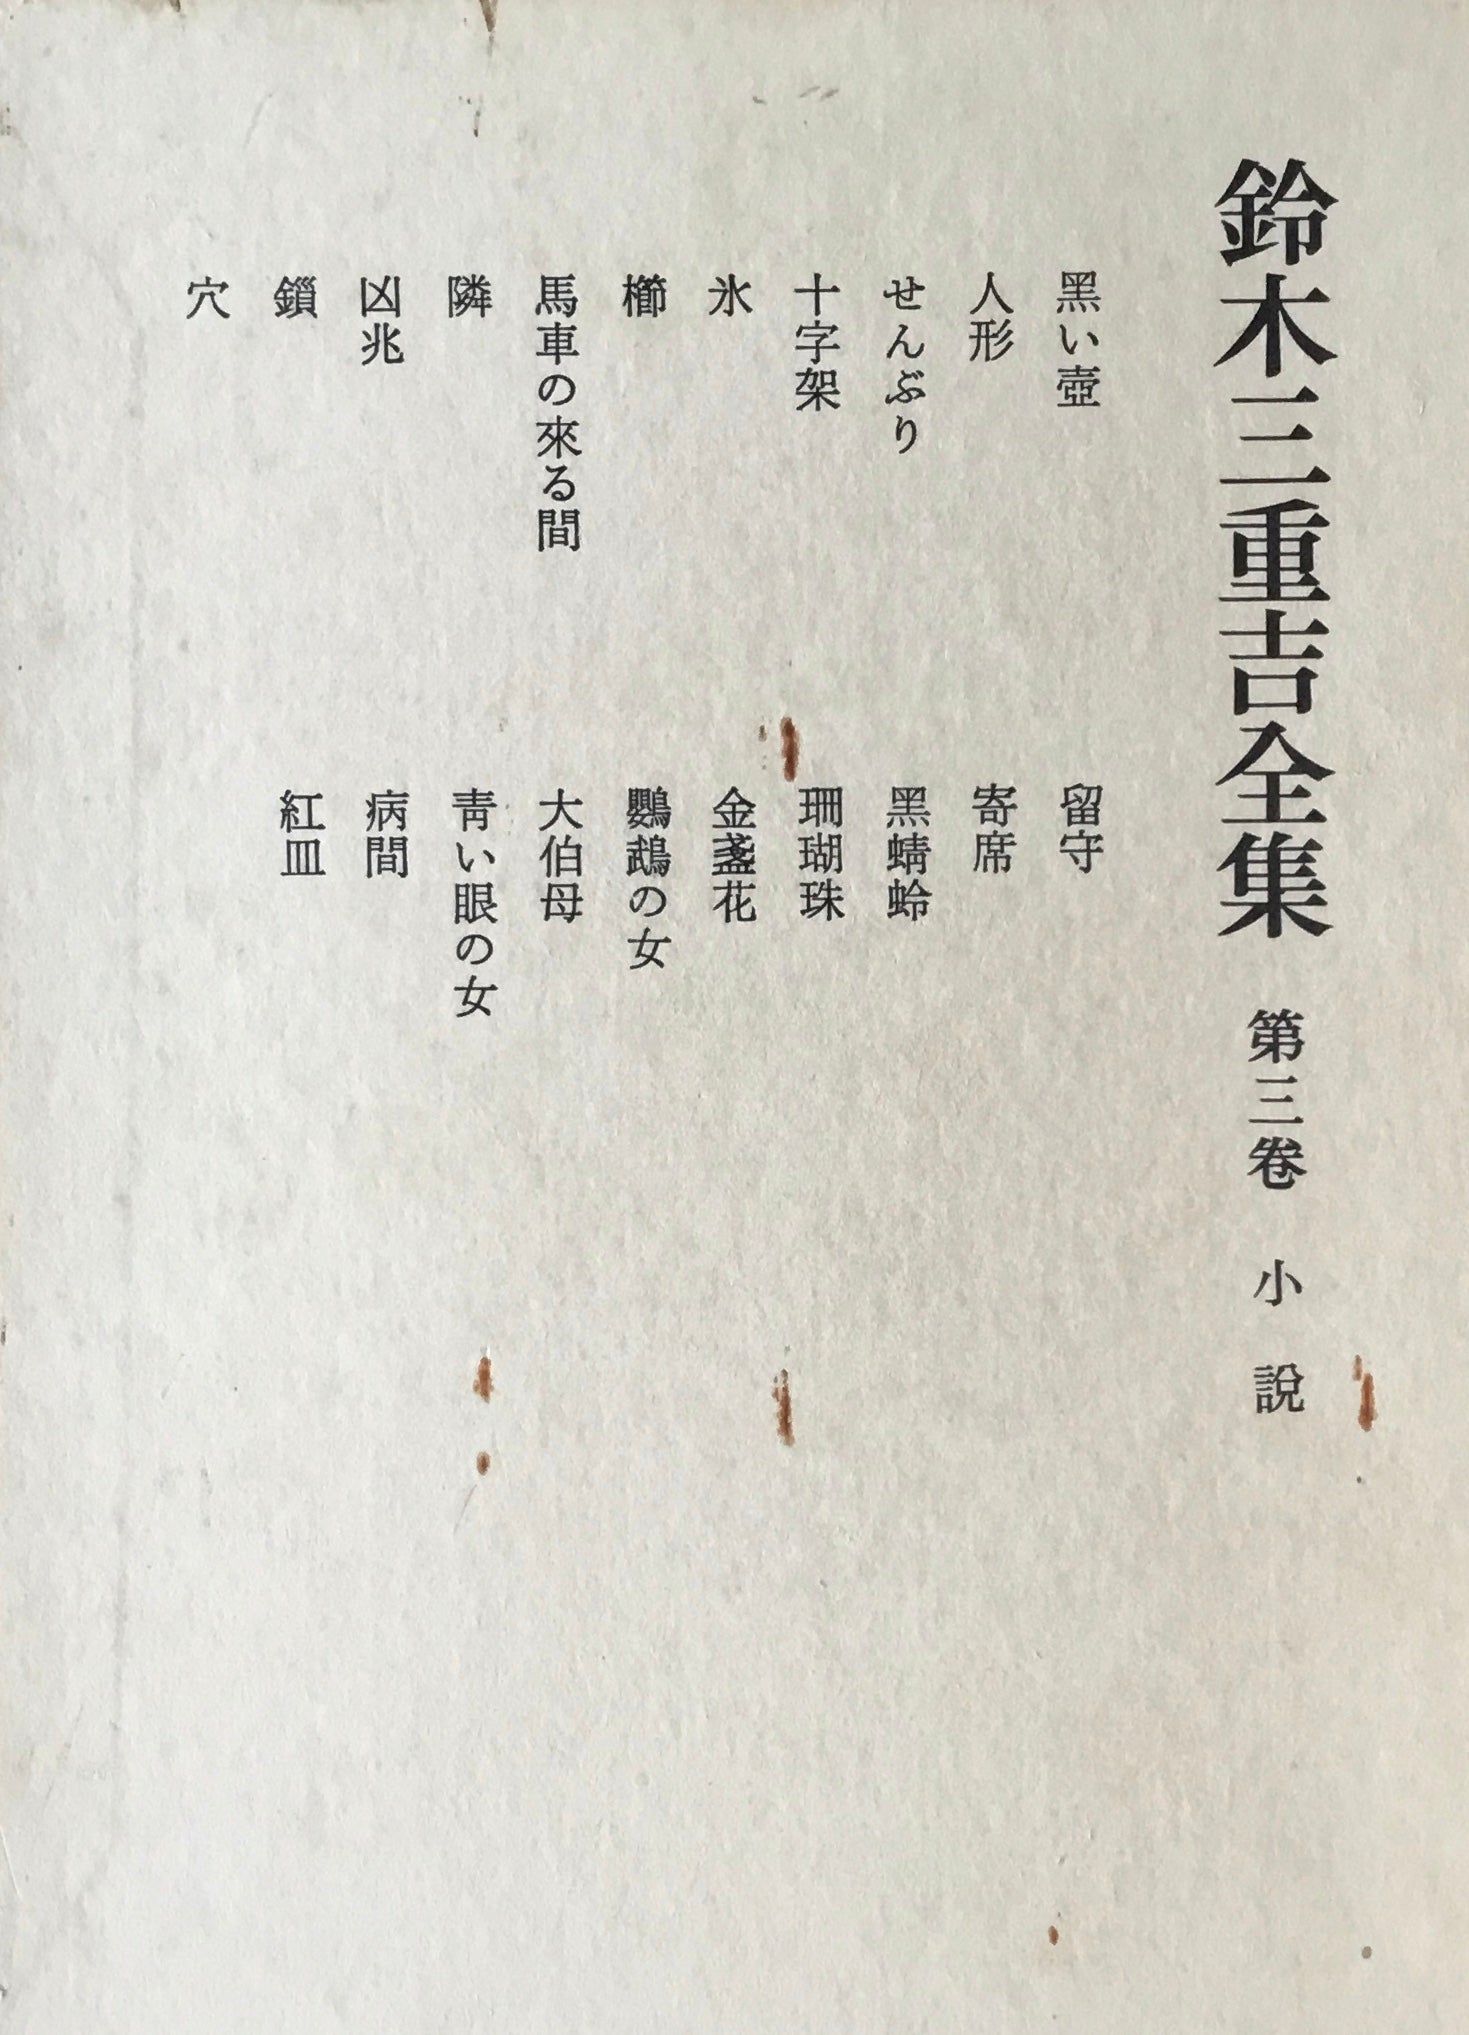 鈴木三重吉全集 第三卷 小說
黑い壺
人形
せんぶり
十字架
氷
櫛
馬車の來る間
隣
凶兆
鎖
穴
留守
寄席
黑蜻蛉
珊瑚珠
金盞花
鸚鵡の女
大伯母
靑い眼の女
病間
紅皿